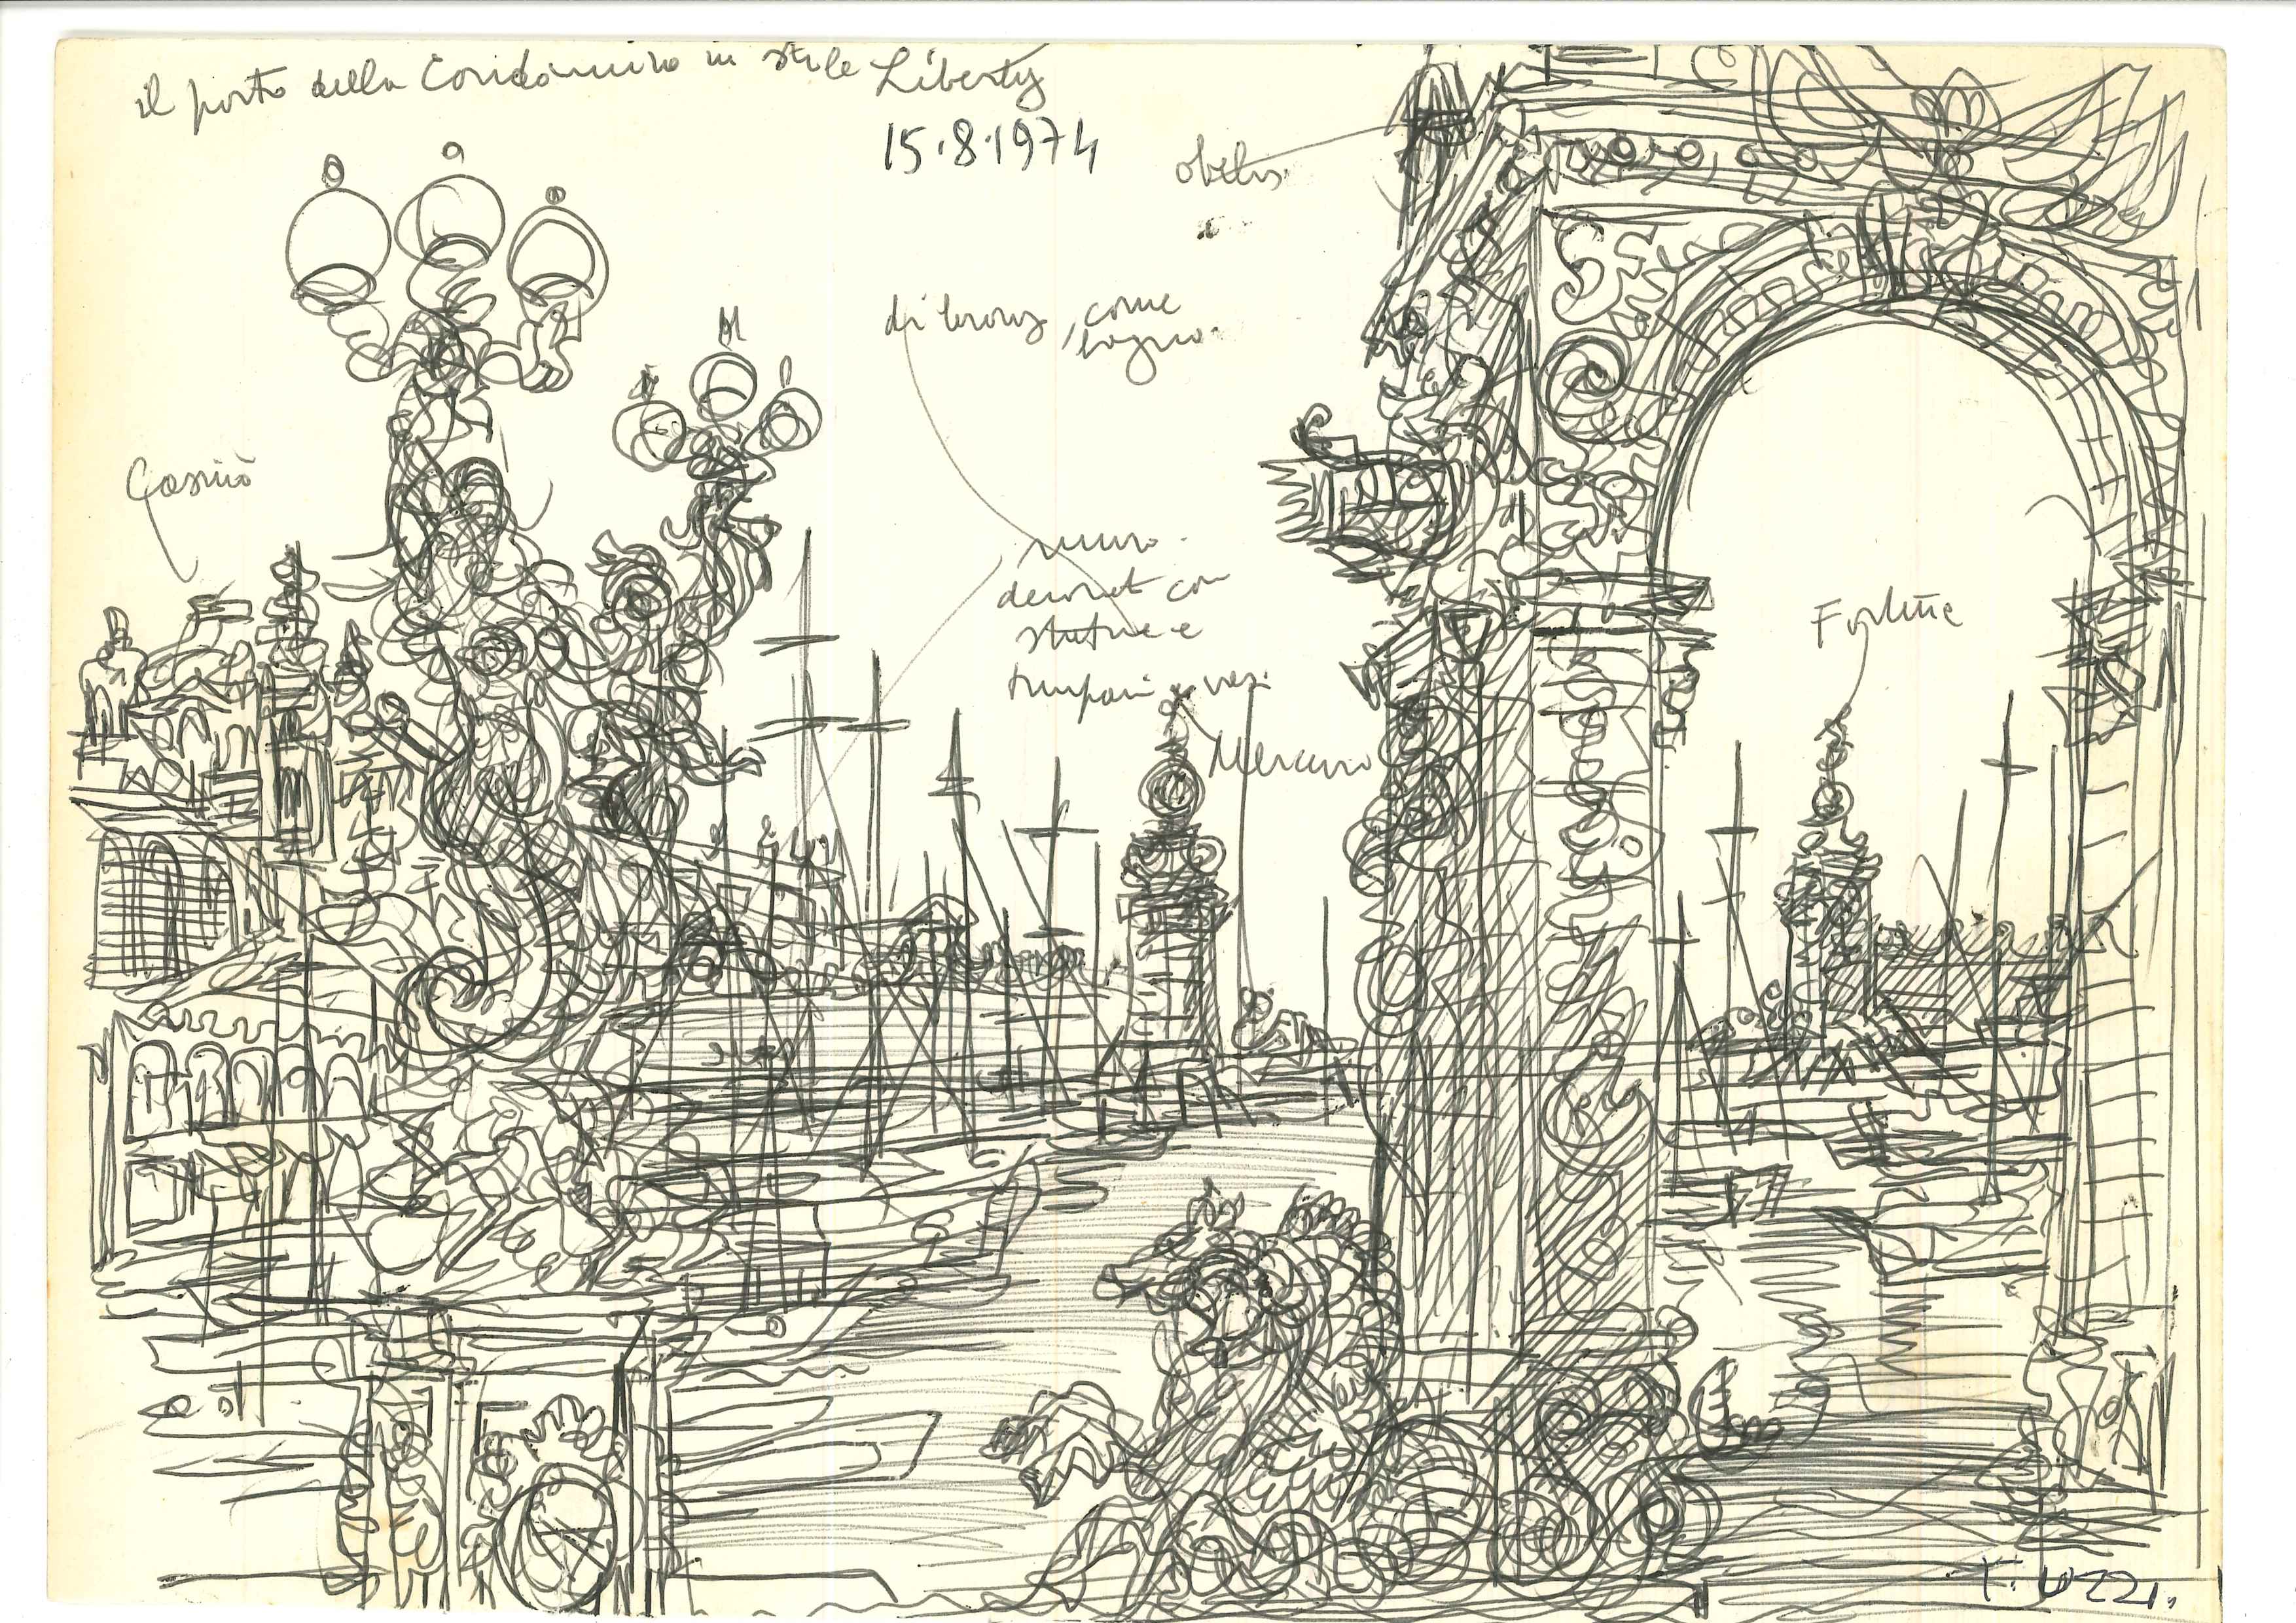 il porto della Coridamira in stile Liberty
15.8.1974
obelis.
di bronz, come
sogno.
Casinò
muro
decorat con
statue e
timpani e vasi
Mercurio
Fortune